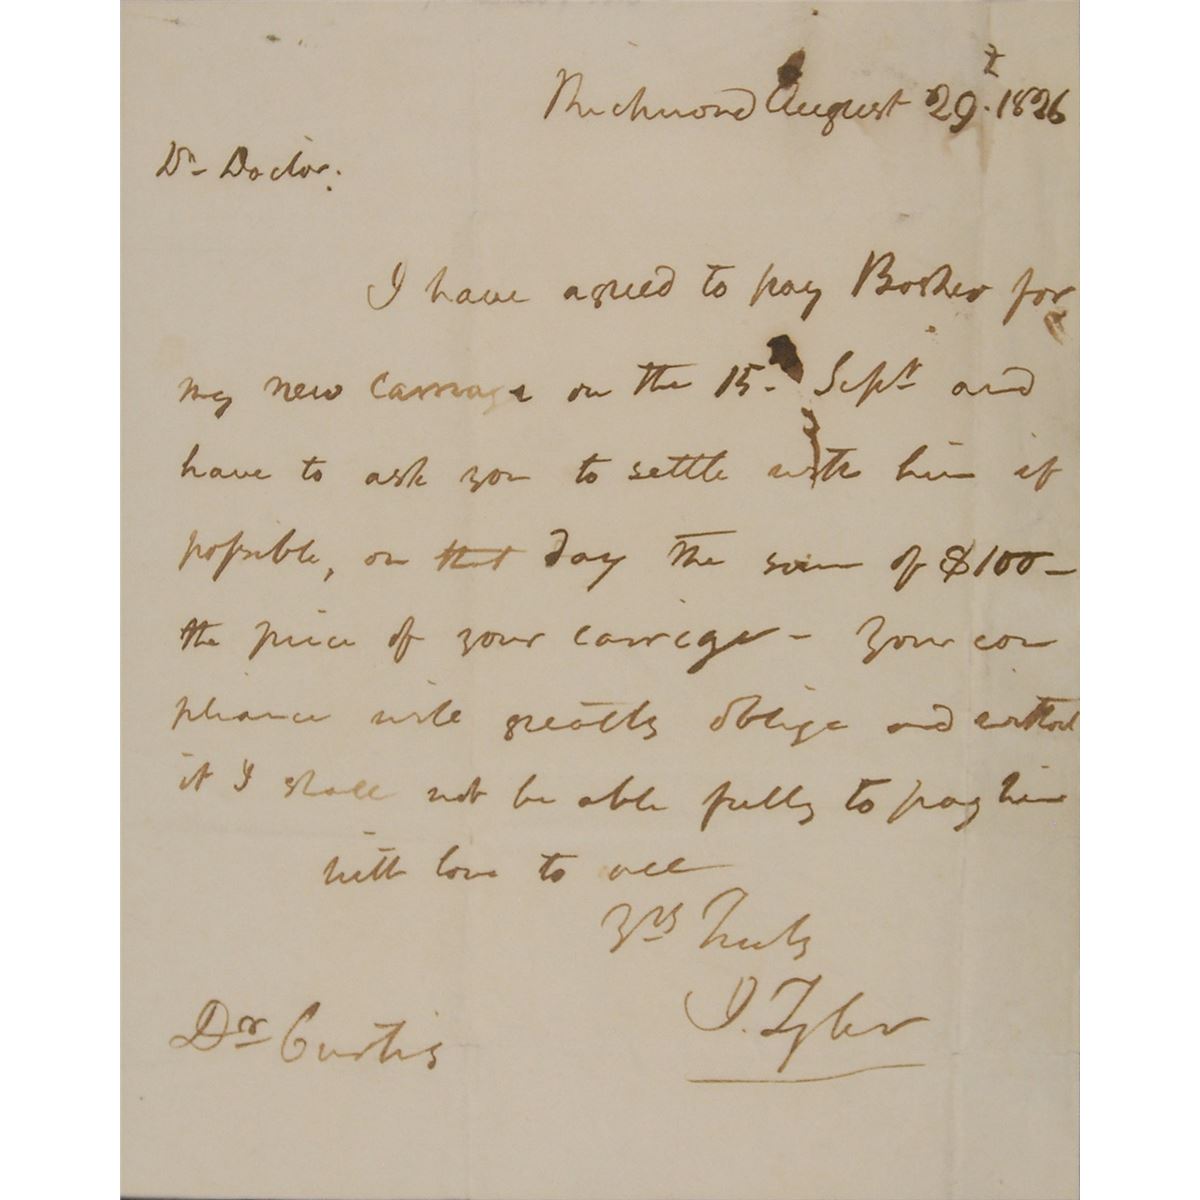 Richmond August 29t. 1826
Dr Doctor.
I have agreed to pay Bosher for
my new Carriage on the 15. Sept and
have to ask you to settle with him if
possible, on that day the sum of $100-
the price of your carriage - Your com
pliance will greatly oblige and without
it I shall not be able fully to pay him
with love to all
Yrs Truly
J. Tyler
Dr Curtis